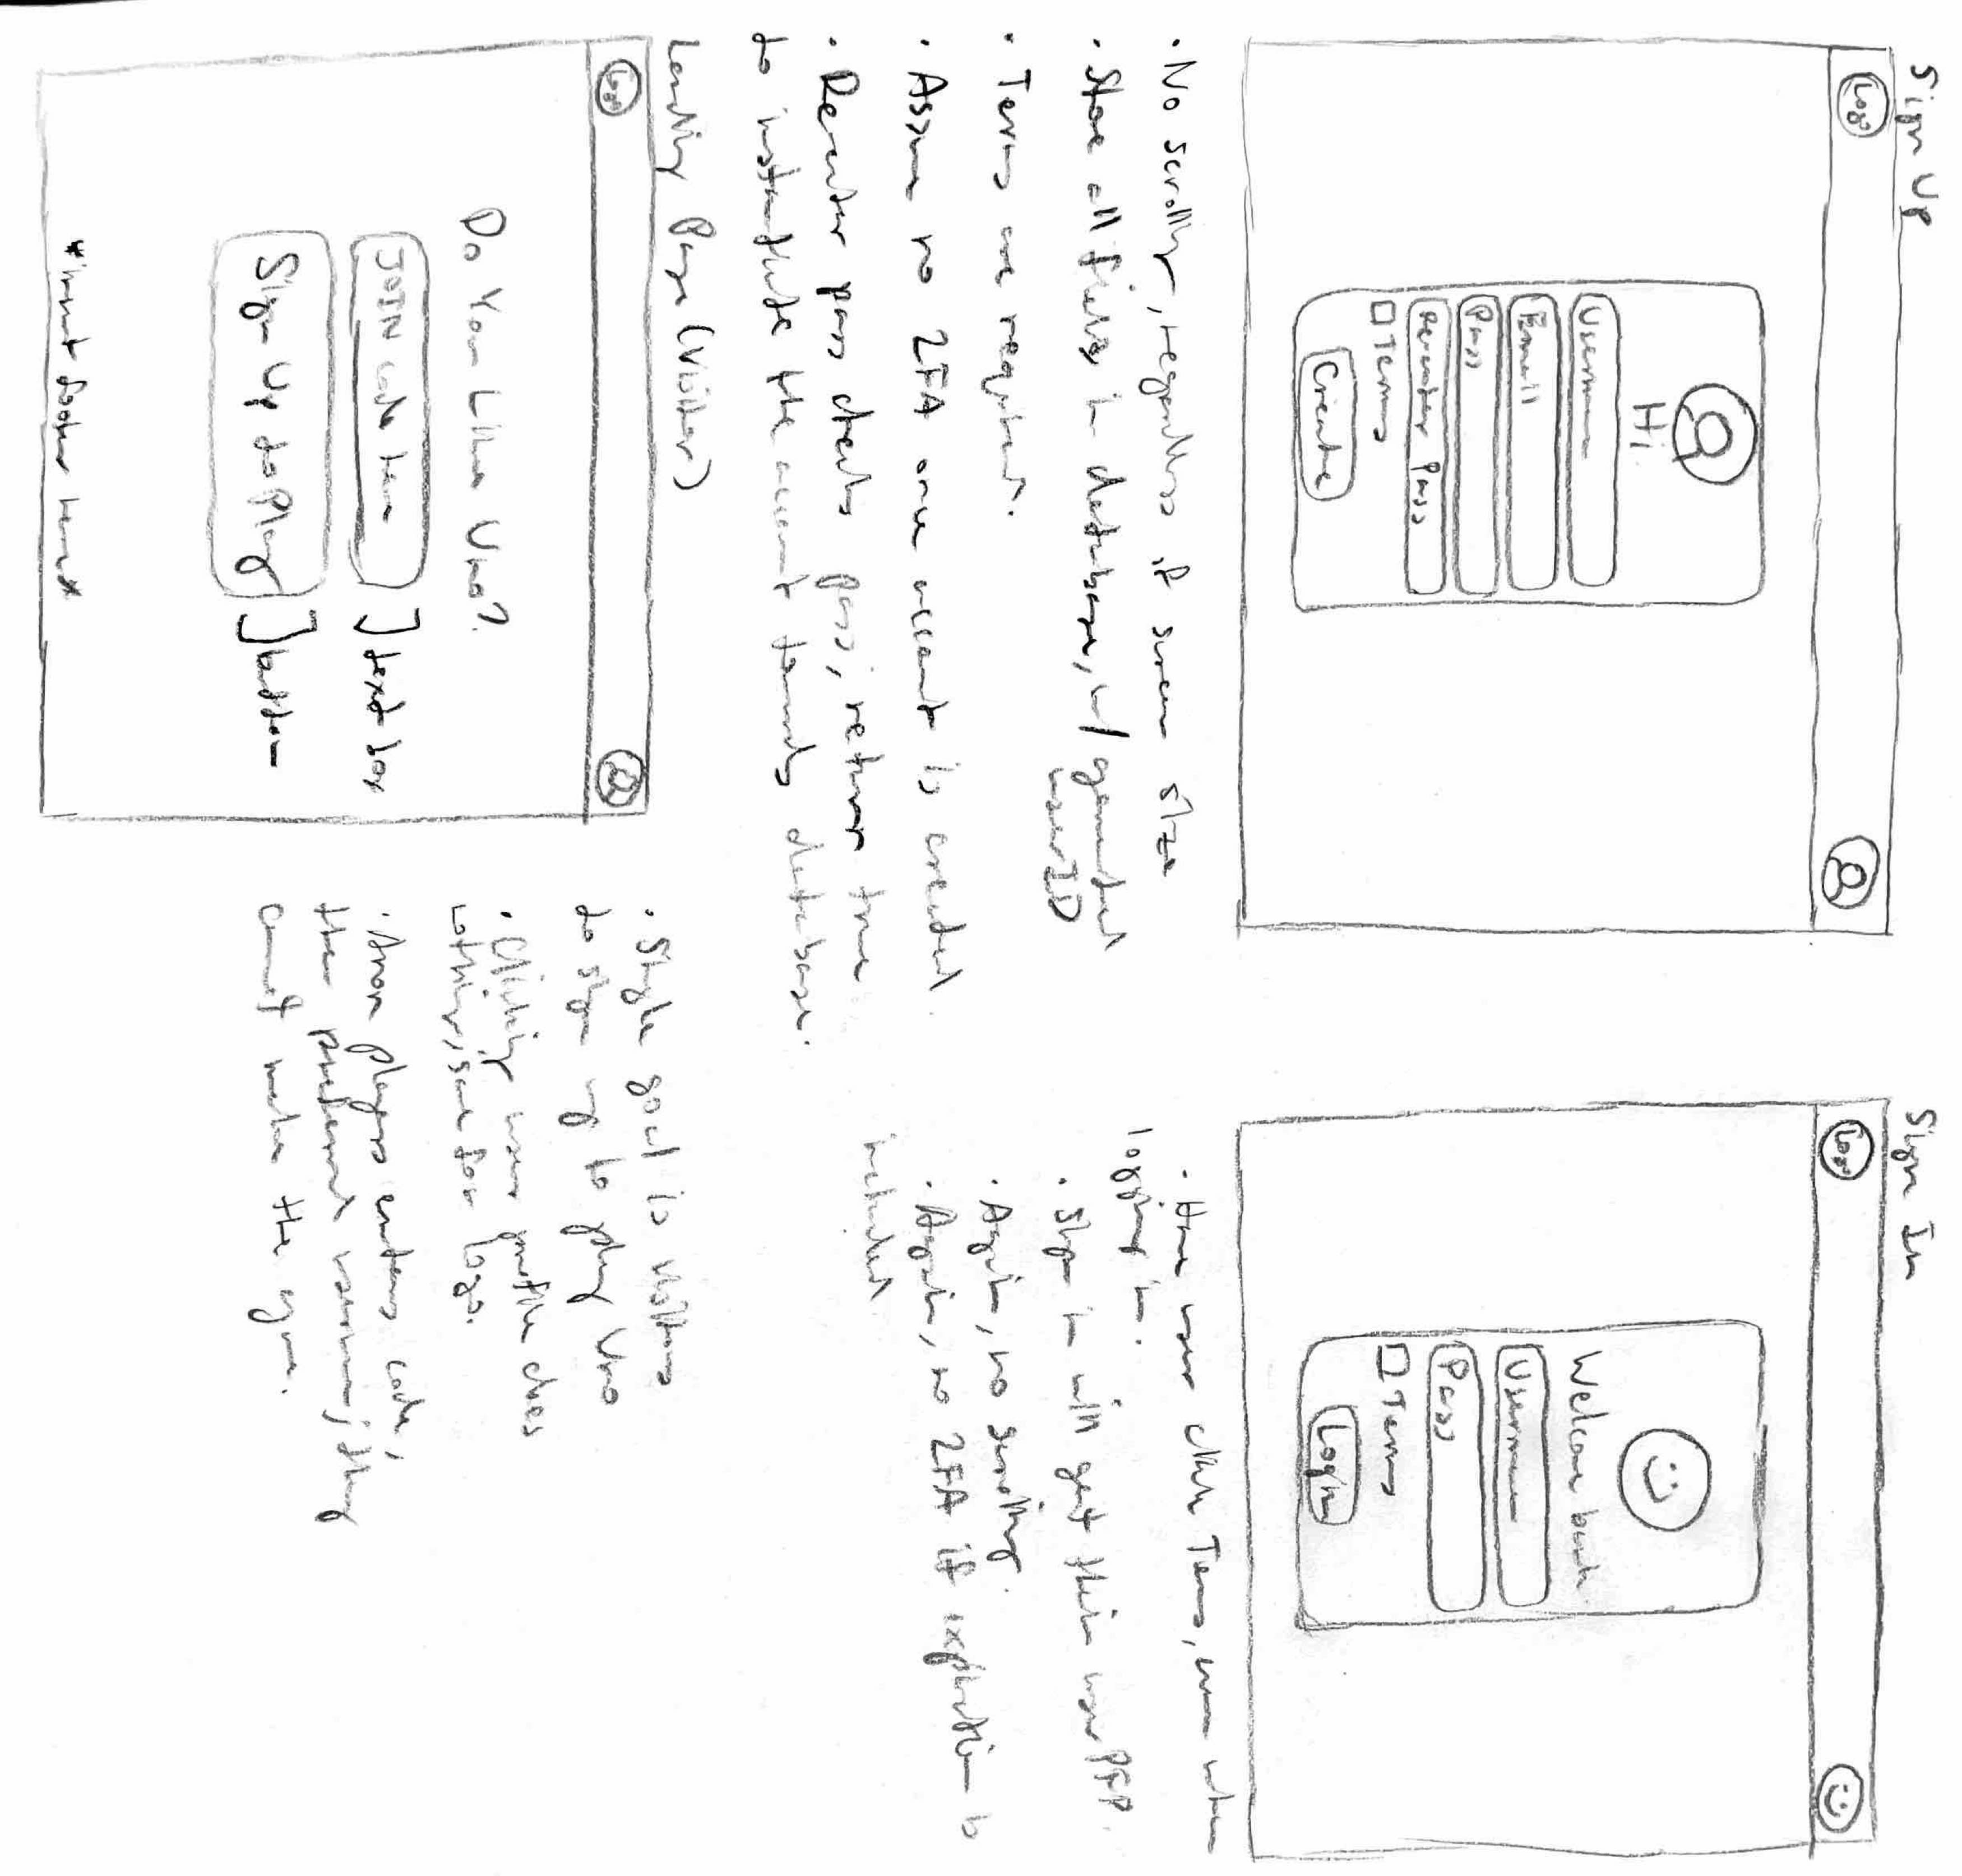 Sign Up
Logo
Hi
Username
Email
Pass
Reenter Pass
Terms
Create
· No scrolling, regardless if screen size
· Store all fields in database, w/ generated
userID
· Terms are required.
· Assume no 2FA once account is created.
· Reenter pass checks pass, return true
to instantiate the account towards database.
Sign In
Logo
Welcome back
Username
Pass
Terms
Login
· Have user click Terms, even when
logging in.
· Sign in will get their user PFP.
· Again, no scrolling.
· Again, no 2FA if expectation is
included.
Landing Page (Visitor)
Logo
Do You Like Uno?
JOIN code here ] text box
Sign Up to Play ] button
*insert footer here*
· Single goal is visitors
to sign up to play Uno
· Clicking user profile does
nothing, same for logo.
· Anon players enters code,
then preferred username; they
cannot make the game.